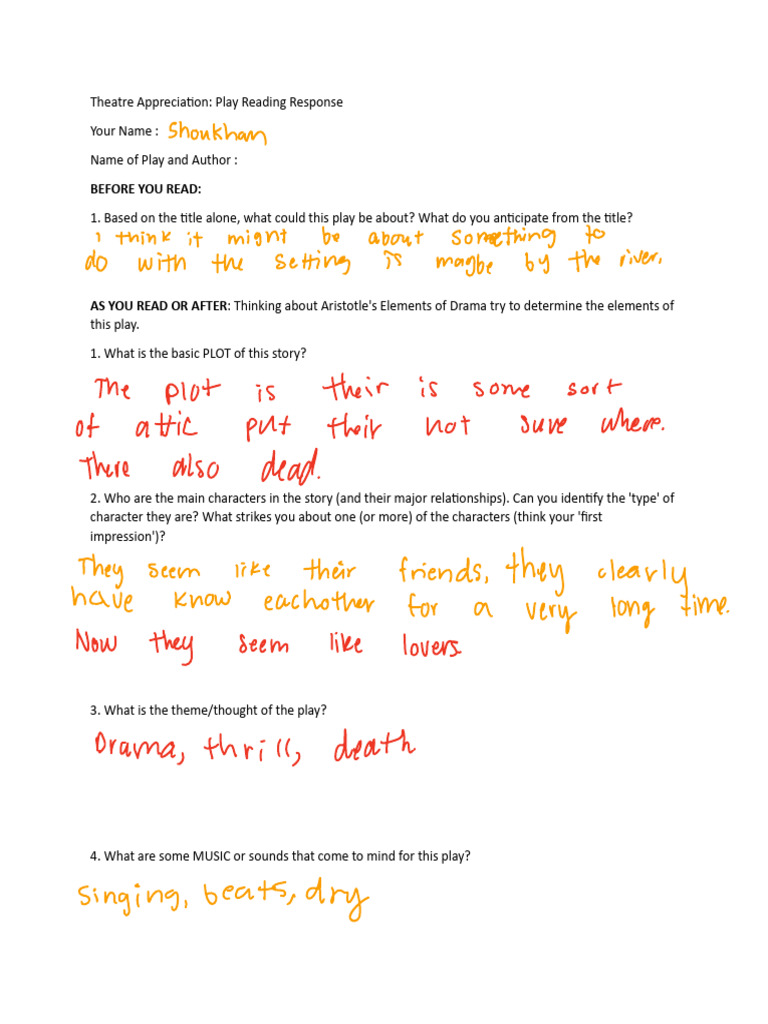 Theatre Appreciation: Play Reading Response
Your Name : Shoukhan
Name of Play and Author :
BEFORE YOU READ:
1. Based on the title alone, what could this play be about? What do you anticipate from the title?
i think it might be about something to
do with the setting is magbe by the river.
AS YOU READ OR AFTER: Thinking about Aristotle's Elements of Drama try to determine the elements of
this play.
1. What is the basic PLOT of this story?
The plot is their is some sort
of attic put their not sure where.
There also dead.
2. Who are the main characters in the story (and their major relationships). Can you identify the 'type' of
character they are? What strikes you about one (or more) of the characters (think your 'first
impression')?
They seem like their friends, they clearly
have know eachother for a very long time.
Now they seem like lovers
3. What is the theme/thought of the play?
Drama, thrill, death
4. What are some MUSIC or sounds that come to mind for this play?
Singing, beats, dry